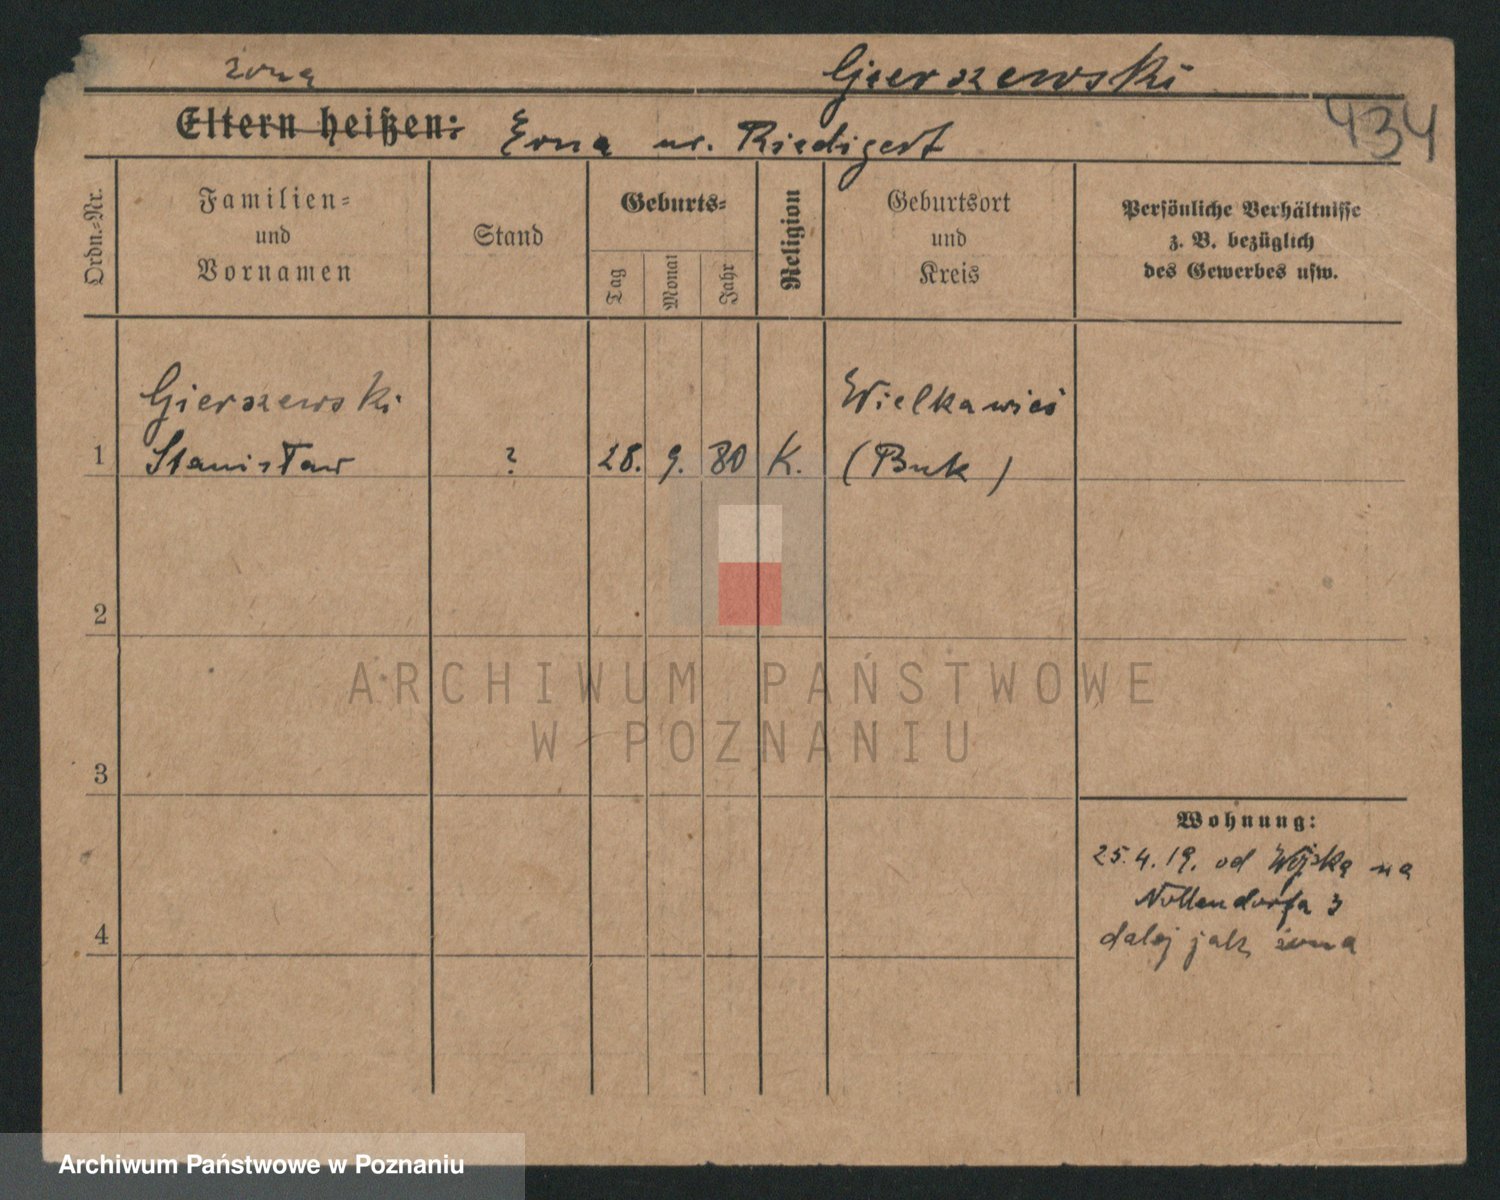 żona
Gierszewski
Eltern heißen: Erna ur. Riedigert
434
Ordn.-Nr.
Familien-
und
Vornamen
Stand
Geburts-
Tag
Monat
Jahr
Religion
Geburtsort
und
Kreis
Persönliche Verhältnisse
z. B. bezüglich
des Gewerbes usw.
Gierszewski
Wielkawieś
1 Stanisław ? 28. 9. 80 K. (Buk)
2
ARCHIWUM PAŃSTWOWE
W POZNANIU
3
Wohnung:
25.4.19. od Wojska na
Nollendorfa 3
dalej jak żona
4
Archiwum Państwowe w Poznaniu